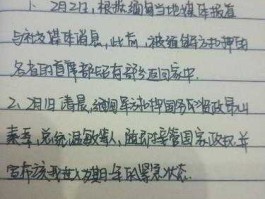 1. 2月2日,根据缅甸当地媒体报道
与社交媒体消息,此前被缅甸军方扣押的
各省的首席部长有部分返回家中.
2. 2月1日清晨,缅甸军方扣押国务资政昂山
素季,总统温敏等人,随即接管国家政权,并
宣布该国进入为期一年的紧急状态.